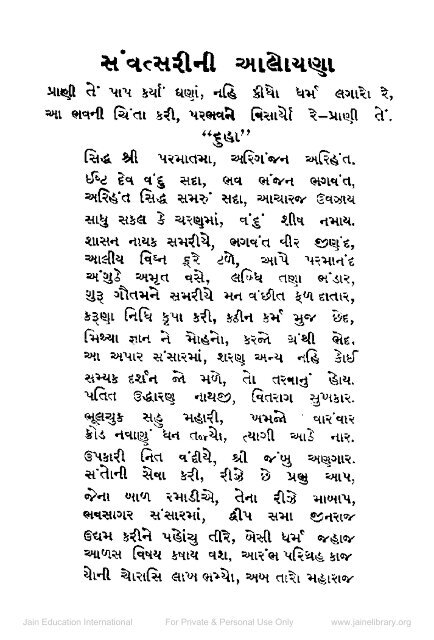 સંવત્સરીની આલોયણા
પ્રાણી તેં પાપ કર્યા ઘણાં, નહિ કીધો ધર્મ લગારો રે,
આ ભવની ચિંતા કરી, પરભવને વિસાર્યો રે–પ્રાણી તેં.
“દુહા”
સિદ્ધ શ્રી પરમાતમા, અરિગંજન અરિહંત.
ઈષ્ટ દેવ વંદુ સદા, ભવ ભંજન ભગવંત,
અરિહંત સિદ્ધ સમરું સદા, આચારજ ઉવજ્ઝાય
સાધુ સકલ કે ચરણુમાં, વંદું શીષ નમાય.
શાસન નાયક સમરીયે, ભગવંત વીર જીણંદ,
આલીય વિઘ્ન દૂરે ટળે, આપે પરમાનંદ
અંગુઠે અમૃત વસે, લબ્ધિ તણા ભંડાર,
ગુરૂ ગૌતમને સમરીયે મન વંછીત ફળ દાતાર,
કરૂણા નિધિ કૃપા કરી, કઠીન કર્મ મુજ છેદ,
મિથ્યા જ્ઞાન ને મોહનો, કરજો ગ્રંથી ભેદ.
આ અપાર સંસારમાં, શરણ અન્ય નહિ કોઈ
સમ્યક દર્શન જો મળે, તો તરવાનું હોય.
પતિત ઉદ્ધારણ નાયજી, વિતરાગ સુખકાર.
ભૂલચુક સહુ મહારી, ખમજો વારંવાર
ક્રોડ નવાણું ધન તજ્યો, ત્યાગી આઠે નાર.
ઉપકારી નિત વંદીયે, શ્રી જંબુ અણગાર.
સંતોની સેવા કરી, રીઝે છે પ્રભુ આપ,
જેના બાળ રમાડીએ, તેના રીઝે માબાપ,
ભવસાગર સંસારમાં, દ્વીપ સમા જીનરાજ
ઉદ્યમ કરીને પહોંચુ તીરે, બેસી ધર્મ જહાજ
આળસ વિષય કષાય વશ, આરંભ પરિગ્રહ કાજ
યોની ચોરાસિ લાખ ભમ્યો, અબ તારો મહારાજ
Jain Education International For Private & Personal Use Only www.jainelibrary.org